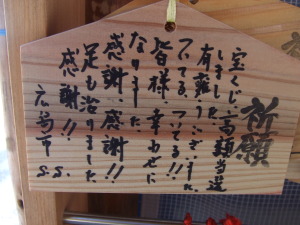 祈願
宝くじ高額当選
しました
有難うございました
ツイてる ツイてる!!
皆様、幸せに
なりました
感謝、感謝!!
足も治りました
感謝!!
広島市 S.S.